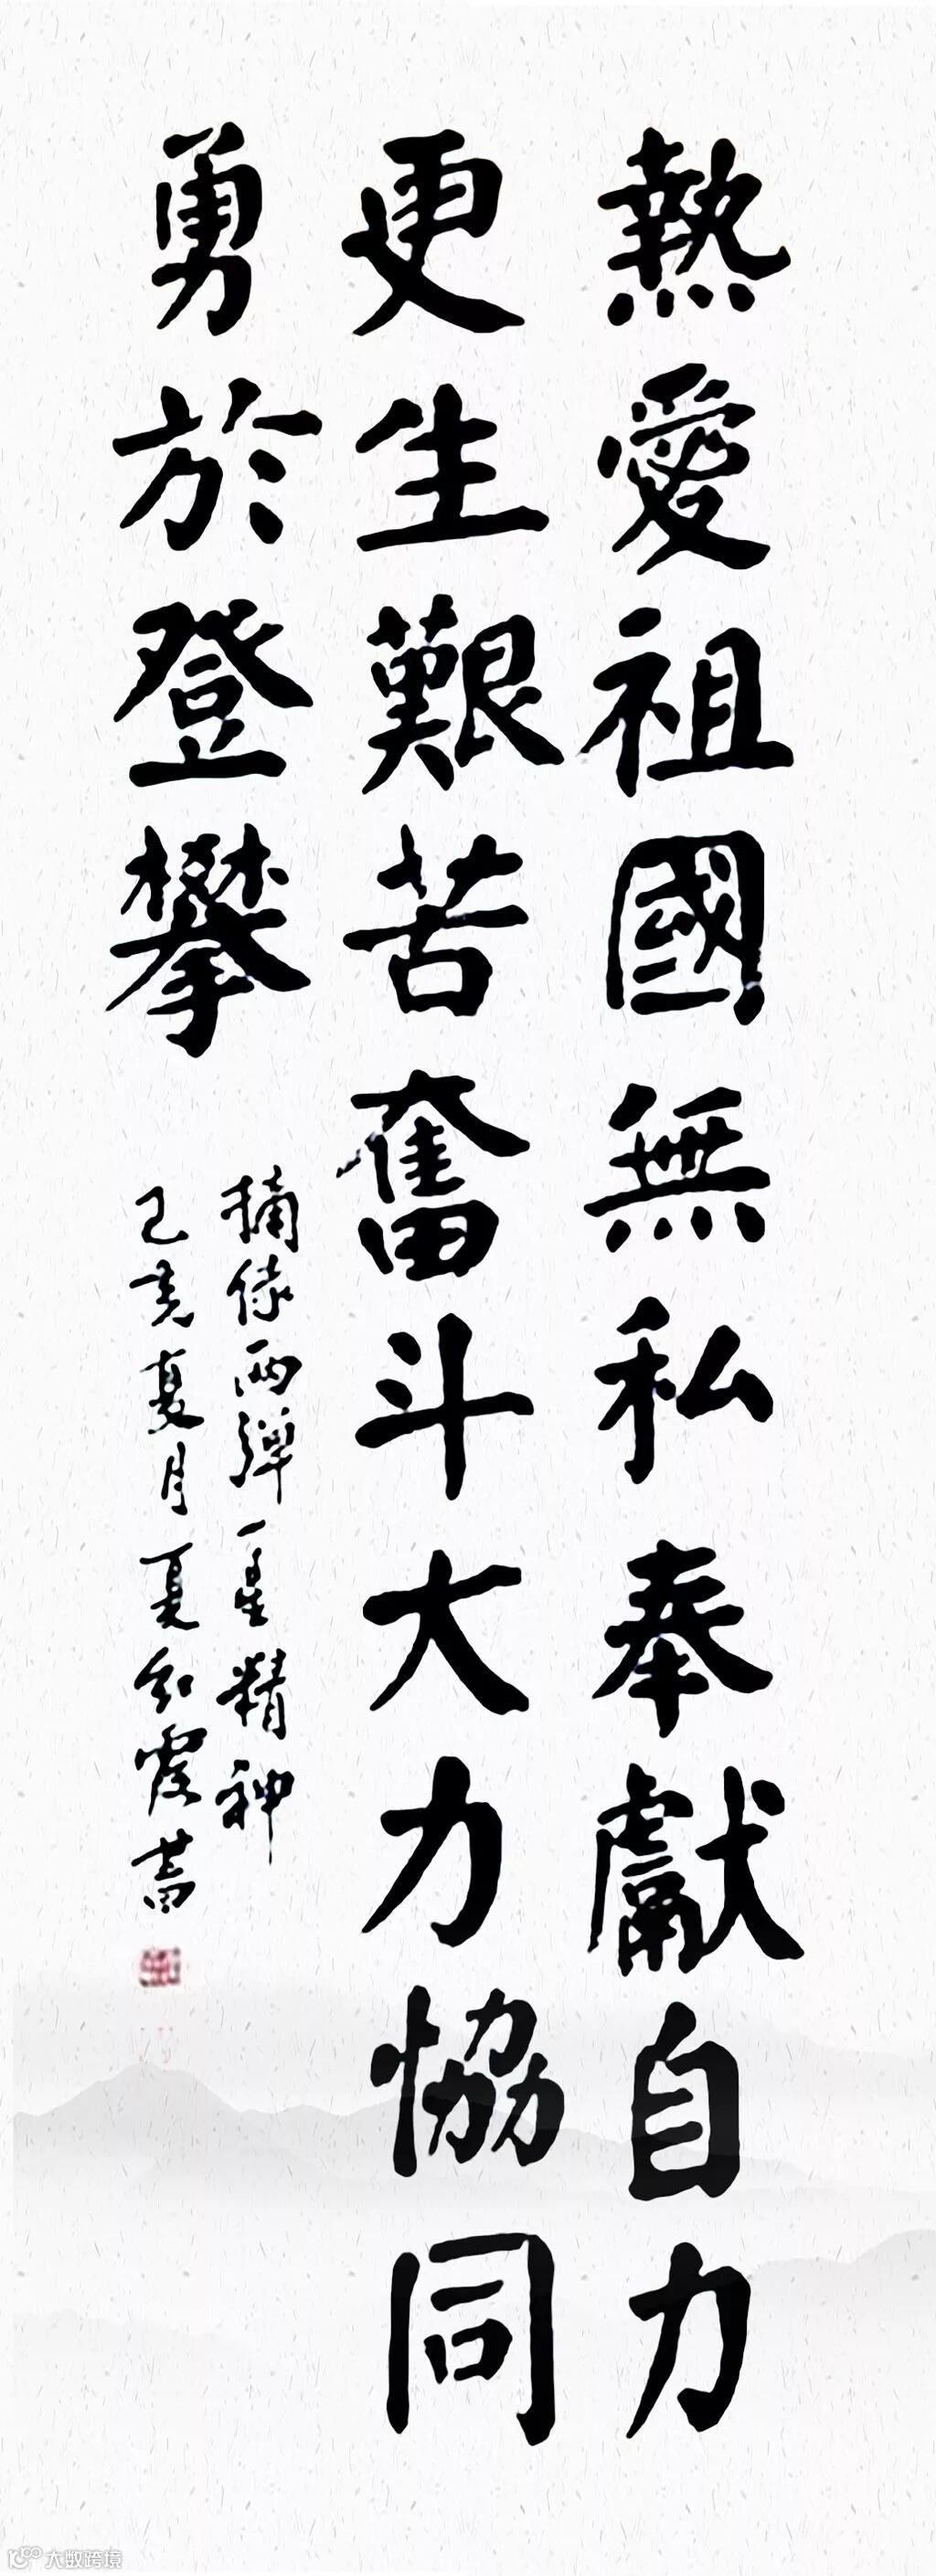 熱愛祖國無私奉獻自力
更生艱苦奮斗大力恊同
勇於登攀
摘錄兩彈一星精神
己亥夏月夏紅霞書
大数跨境